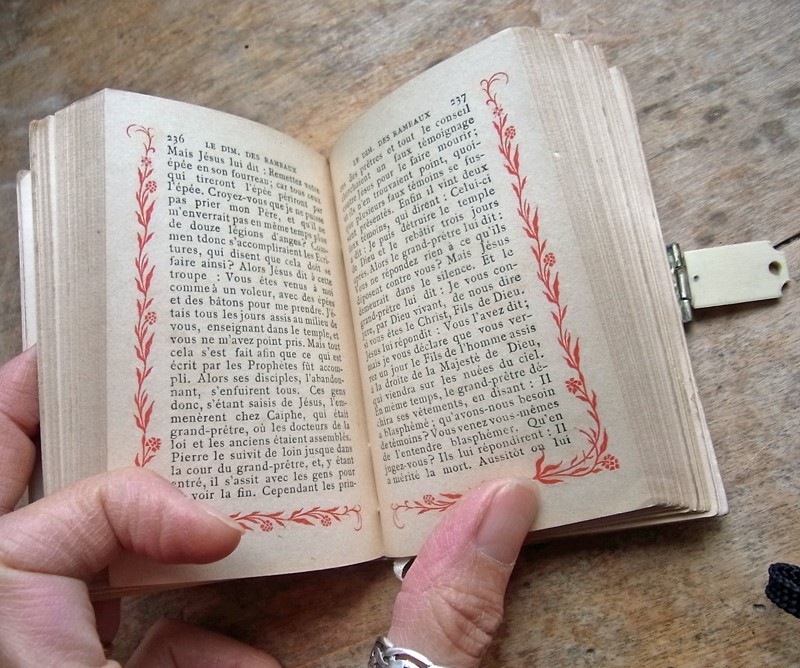 236 LE DIM. DES RAMEAUX
Mais Jésus lui dit : Remettez votre
épée en son fourreau; car tous ceux
qui tireront l'épée périront par
l'épée. Croyez-vous que je ne puisse
pas prier mon Père, et qu'il ne
m'enverrait pas en même temps plus
de douze légions d'anges? Com-
men tdonc s'accompliraient les Ecri-
tures, qui disent que cela doit se
faire ainsi? Alors Jésus dit à cette
troupe : Vous êtes venus à moi
comme à un voleur, avec des épées
et des bâtons pour me prendre. J'é-
tais tous les jours assis au milieu de
vous, enseignant dans le temple, et
vous ne m'avez point pris. Mais tout
cela s'est fait afin que ce qui est
écrit par les Prophètes fût accom-
pli. Alors ses disciples, l'abandon-
nant, s'enfuirent tous. Ces gens
donc, s'étant saisis de Jésus, l'em-
menèrent chez Caïphe, qui était
grand-prêtre, où les docteurs de la
loi et les anciens étaient assemblés.
Pierre le suivit de loin jusque dans
la cour du grand-prêtre, et, y étant
entré, il s'assit avec les gens pour
voir la fin. Cependant les prin-
LE DIM. DES RAMEAUX 237
des prêtres et tout le conseil
cherchaient un faux témoignage
contre Jésus pour le faire mourir;
et ils n'en trouvaient point, quoi-
que plusieurs faux témoins se fus-
sent présentés. Enfin il vint deux
faux témoins, qui dirent : Celui-ci
a dit : Je puis détruire le temple
de Dieu et le rebâtir trois jours
après. Alors le grand-prêtre lui dit :
Vous ne répondez rien à ce qu'ils
déposent contre vous? Mais Jésus
demeurait dans le silence. Et le
grand-prêtre lui dit : Je vous con-
jure, par Dieu vivant, de nous dire
si vous êtes le Christ, Fils de Dieu.
Jésus lui répondit : Vous l'avez dit;
mais je vous déclare que vous ver-
rez un jour le Fils de l'homme assis
à la droite de la Majesté de Dieu,
qui viendra sur les nuées du ciel.
En même temps, le grand-prêtre dé-
chira ses vêtements, en disant : Il
a blasphémé; qu'avons-nous besoin
de témoins? Vous venez vous-mêmes
de l'entendre blasphémer. Qu'en
jugez-vous? Ils lui répondirent : Il
a mérité la mort. Aussitôt on lui